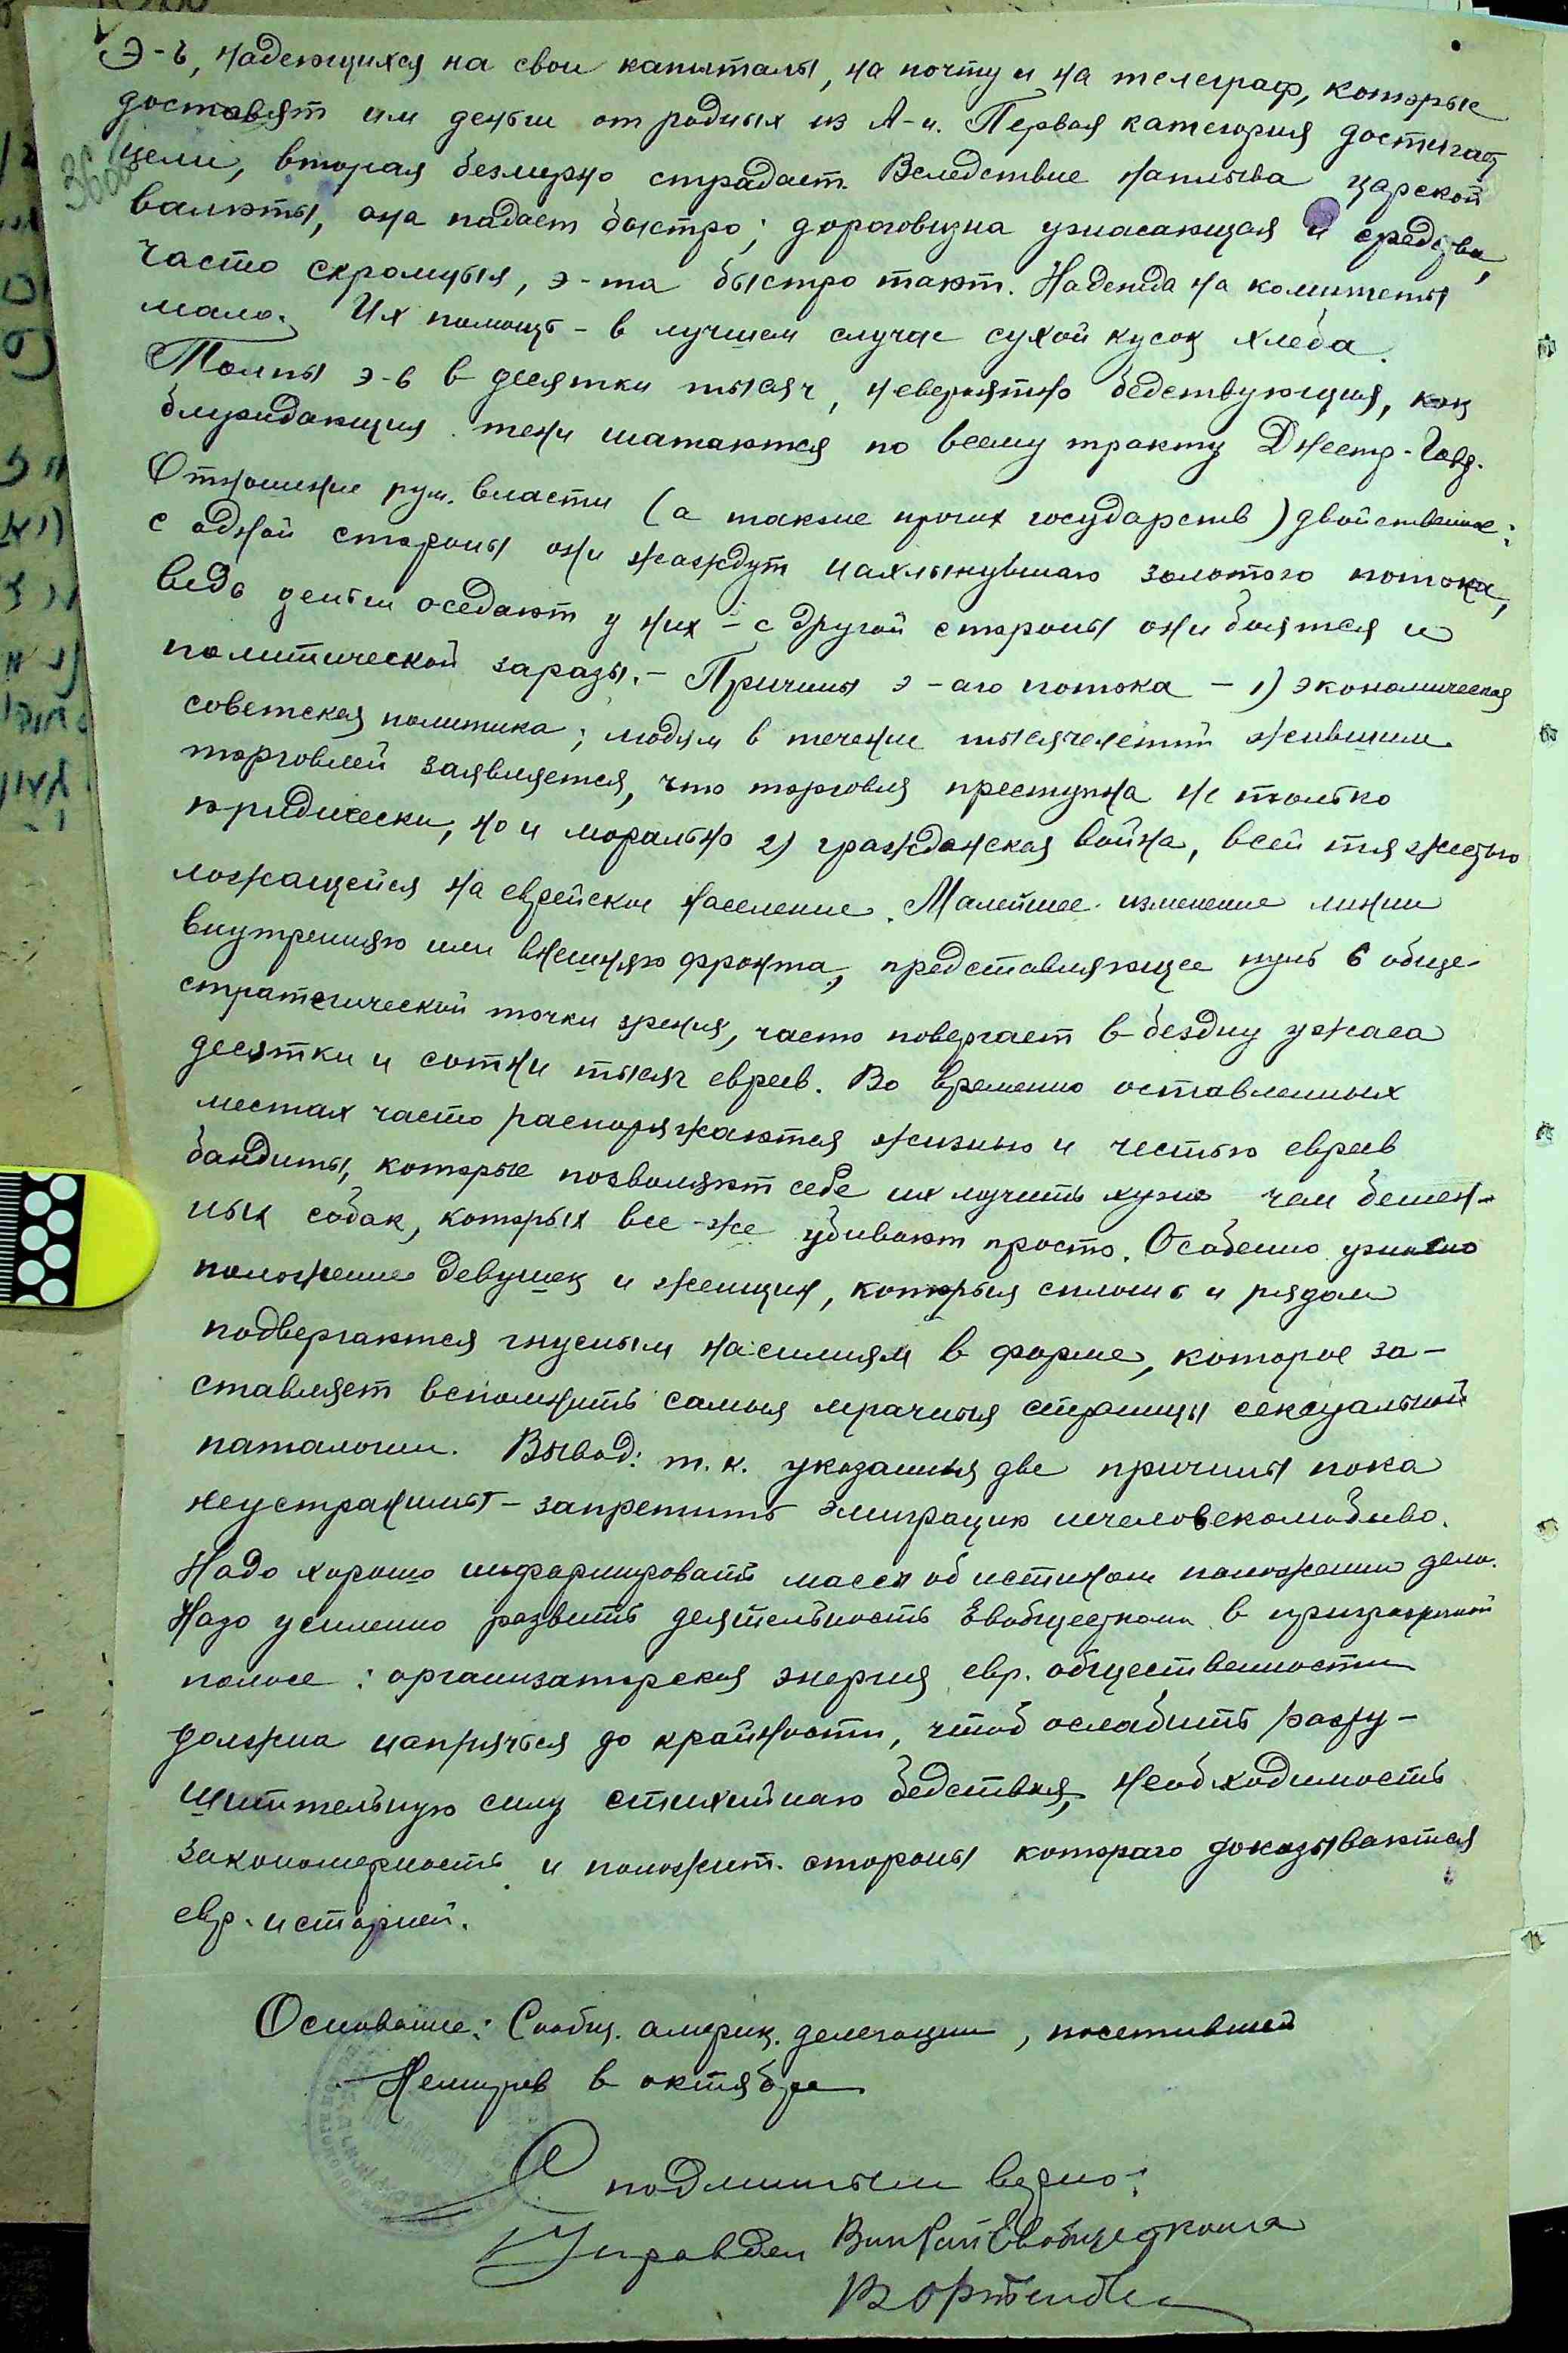 Э-в, надеющихся на свои капиталы, на почту и на телеграф, которые
доставят им деньги от родных из А-и. Первая категория достигает
цели, вторая безмерно страдает. Вследствие наплыва царской
валюты, она падает быстро; дороговизна ужасающая и средства,
часто скромныя, э-та быстро тают. Надежда на комитеты
мало. Их помощь - в лучшем случае сухой кусок хлеба.
Толпы э-в в десятки тысяч, невероятно бедствующия, как
блуждающия тени шатаются по всему тракту Днестр-
Отношение рум. власти (а также прочих государств) двойственное:
с одной стороны они жаждут нахлынувшаго золотого потока,
ведь деньги оседают у них - с другой стороны они боятся и
политической заразы. - Причины э-аго потока - 1) экономическая
советская политика; людям в течение тысячелетий жившим
торговлей заявляется, что торговля преступна не только
юридически, но и морально 2) гражданская война, всей тяжестью
ложащейся на еврейское население. Малейшее изменение линии
внутренняго или внешняго фронта, представляющее нуль с обще-
стратегической точки зрения, часто повергает в бездну ужаса
десятки и сотни тысяч евреев. Во временно оставленных
местах часто распоряжаются жизнью и честью евреев
бандиты, которые позволяют себе их мучить хуже чем бешен-
ных собак, которых все-же убивают просто. Особенно ужасно
положение девушек и женщин, которыя сплошь и рядом
подвергаются гнусным насилиям в форме, которое за-
ставляет вспомнить самыя мрачныя страницы сексуальной
паталогии. Вывод: т.к. указанныя две причины пока
неустранимы - запретить эмиграцию нечеловеколюбиво.
Надо хорошо информировать массы об истином положении дела.
Надо усиленно развить деятельность Евобщесткома в приграничной
полосе: организаторская энергия евр. общественности
должна напрячься до крайности, чтоб ослабить разру-
шительную силу стихийнаго бедствия, необходимость
закономерность и положит. стороны котораго доказываются
евр. историей.
Основание: Сообщ. америк. делегации, посетившей
Немиров в октябре
С подлинным верно:
Управдел Вин Рай Евобщесткома